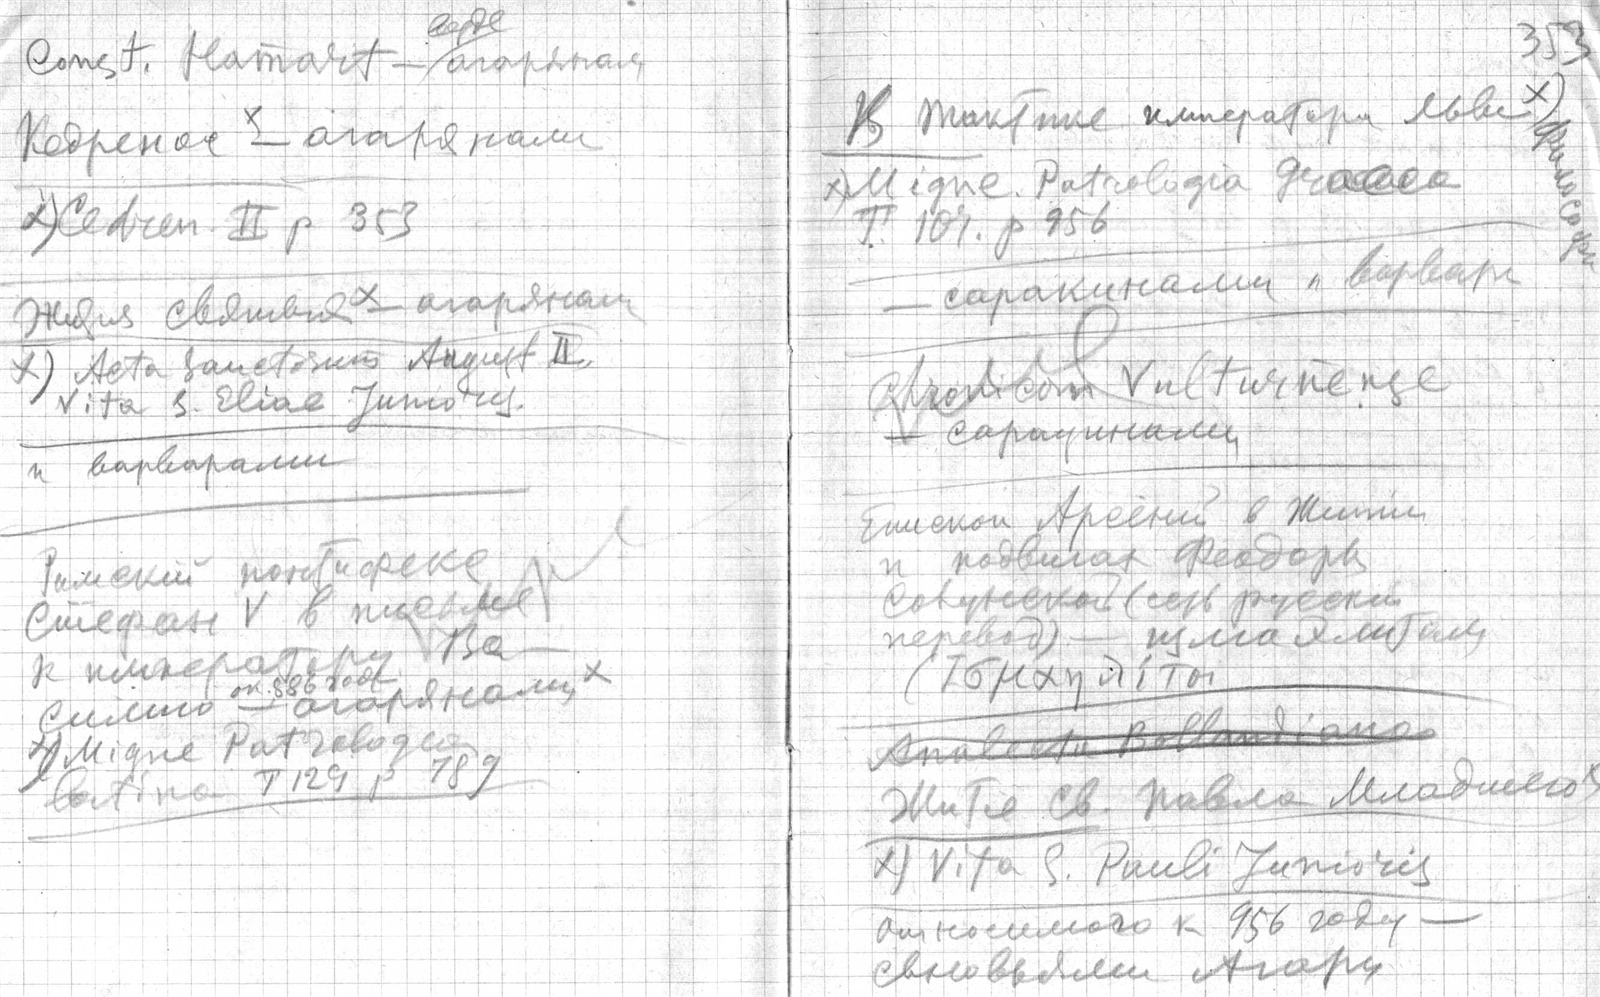 Const.
— агарянам
Кедренос x — агарянами
x) Cedren. II p 353
Жития святых x — агарянам
x) Acta Sanctorum August II.
Vita S. Eliae Junioris.
и варварами
Римский понтифекс
Стефан V в письме
к императору Ва-
ок. 886 года
силию — агарянами x
x) Migne Patrologia
latina T 129 p 789
353
В тактике императора Льва x)
Философа
x) Migne. Patrologia graeca
T 107. p 956
— саракинами и варвары
Chronicon Vulturnense
— сарацинами
Епископ Арсений в Житии
и подвигах Феодоры
Солунской (есть русский
перевод) — измаилитами
Analecta Bollandiana
Житие св. Павла Младшего x
x) Vita S. Pauli Junioris
относимого к 956 году —
сыновьями Агари